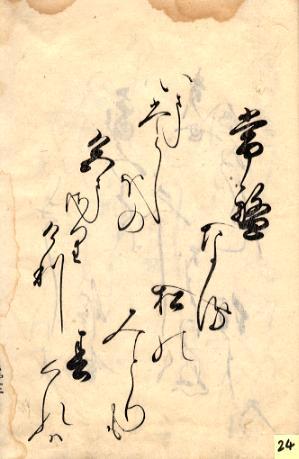 常盤
なる
松の
みとりも
春
くれは
いまひとし
ほの
色まさり
けり
24